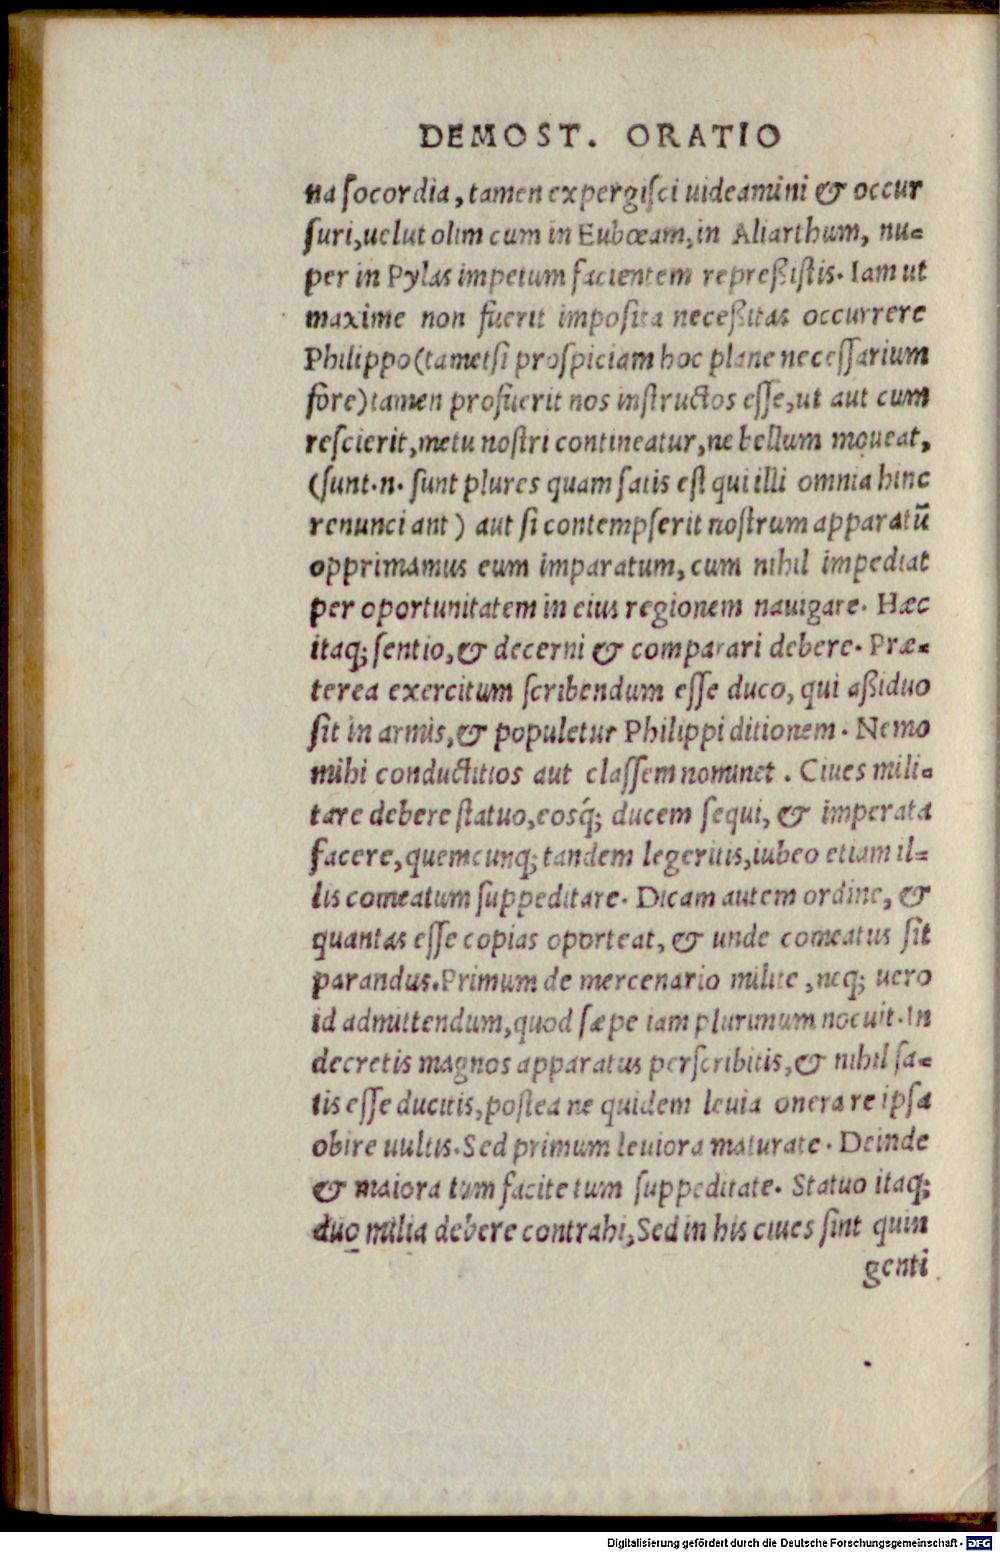 DEMOST. ORATIO
na ſocordia, tamen expergiſci uideamini & occur
ſuri, uelut olim cum in Eubœam, in Aliarthum, nu-
per in Pylas impetum facientem repreßiſtis. Iam ut
maxime non fuerit impoſita neceßitas occurrere
Philippo (tametſi proſpiciam hoc plane neceſſarium
fore) tamen profuerit nos inſtructos eſſe, ut aut cum
reſcierit, metu noſtri contineatur, ne bellum moueat,
(ſunt.n. ſunt plures quam ſatis eſt qui illi omnia hinc
renunciant) aut ſi contempſerit noſtrum apparatū
opprimamus eum imparatum, cum nihil impediat
per oportunitatem in eius regionem nauigare. Hæc
itaq; ſentio, & decerni & comparari debere. Præ-
terea exercitum ſcribendum eſſe duco, qui aßiduo
ſit in armis, & populetur Philippi ditionem. Nemo
mihi conductitios aut claſſem nominet. Ciues mili-
tare debere ſtatuo, eosq́; ducem ſequi, & imperata
facere, quemcunq; tandem legeritis, iubeo etiam il-
lis comeatum ſuppeditare. Dicam autem ordine, &
quantas eſſe copias oporteat, & unde comeatus ſit
parandus. Primum de mercenario milite, neq; uero
id admittendum, quod ſæpe iam plurimum nocuit. In
decretis magnos apparatus perſcribitis, & nihil ſa-
tis eſſe ducitis, poſtea ne quidem leuia onera re ipſa
obire uultis. Sed primum leuiora maturate. Deinde
& maiora tum facite tum ſuppeditate. Statuo itaq;
duo milia debere contrahi, Sed in his ciues ſint quin
genti
Digitalisierung gefördert durch die Deutsche Forschungsgemeinschaft - DFG